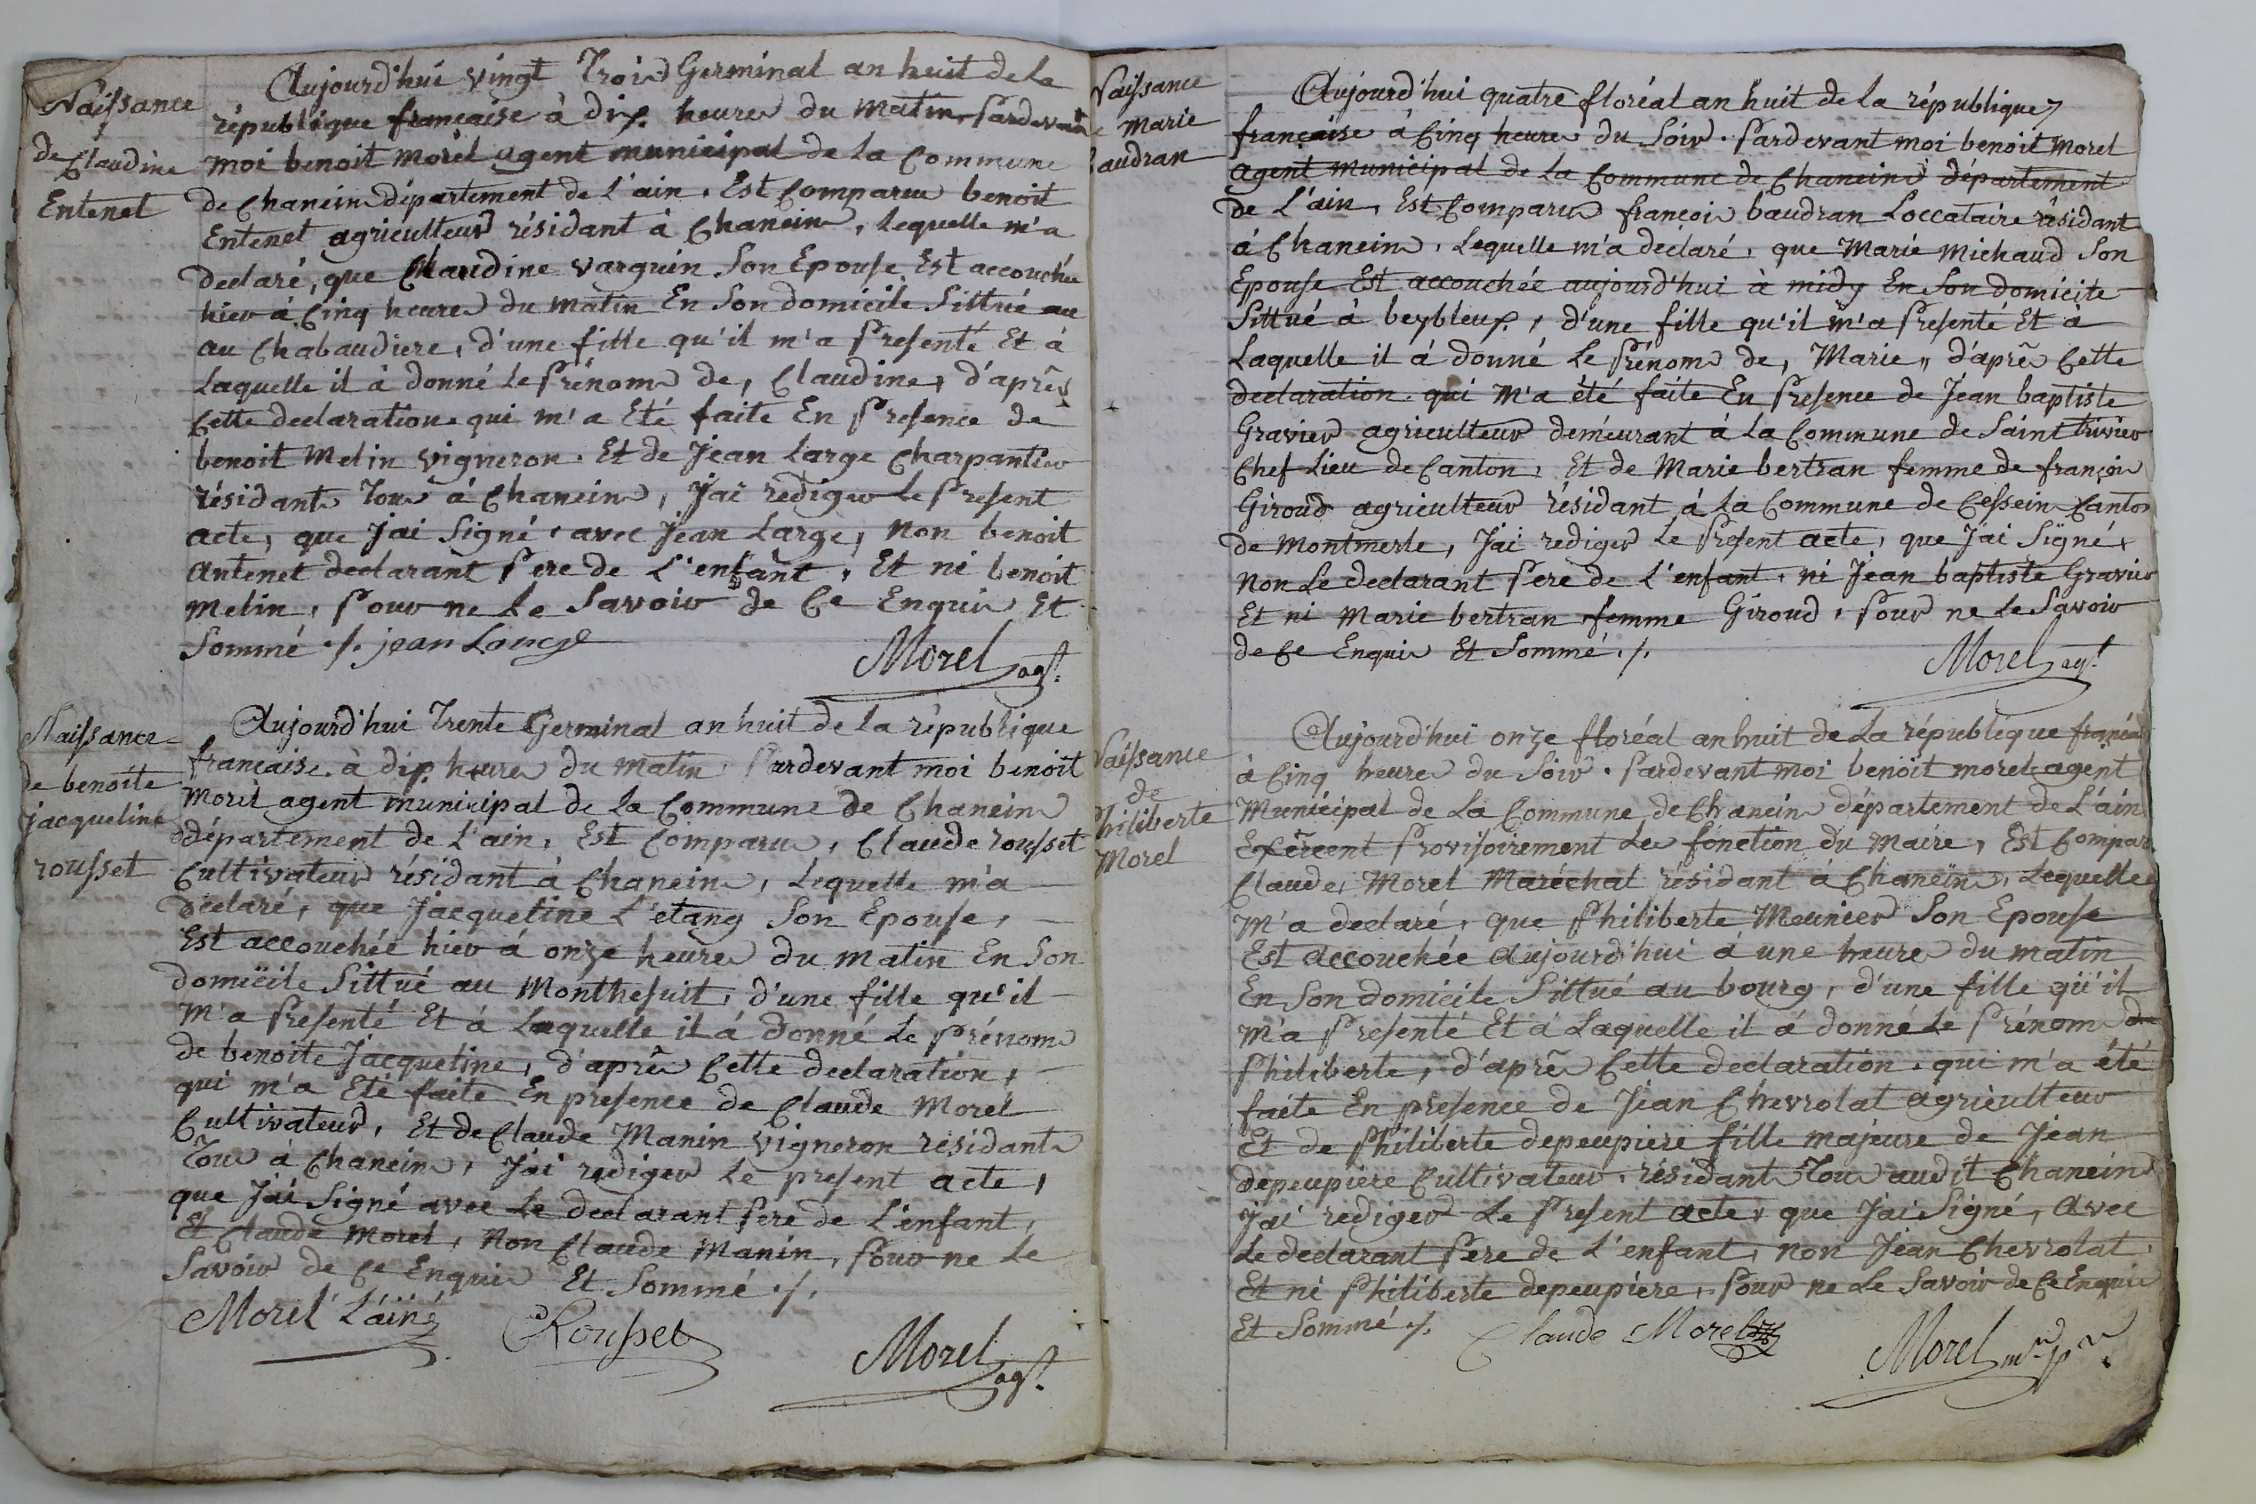 Naissance
de Claudine
Entenet
Aujourd'hui vingt Trois Germinal an huit de la
république française à dix heures du matin, Pardevant
moi benoit morel agent municipal de la Commune
de Chanein département de l'ain, Est Comparu benoit
Entenet agriculteur résidant à Chanein, Lequelle m'a
declaré, que Claudine varguin Son Epouse Est accouchée
hier à Cinq heures du matin En Son domicile Sittué au
au Chabaudiere, d'une fille qu'il m'a Presenté Et à
Laquelle il à donné Le Prénom de, Claudine, d'après
Cette declaration qui m'a Eté faite En Presence de
benoit Melin vigneron. Et de Jean Large Charpantier
résidants Tous à Chanein, J'ai rediger Le Present
acte, que J'ai Signé, avec Jean Large, non benoit
antenet declarant Pere de L'enfant, Et ni benoit
melin, Pour ne Le Savoir de Ce Enquis Et
Sommé ./. jean Large
Morel agt.
Naissance
de benoite
jacqueline
rousset
Aujourd'hui Trente Germinal an huit de la république
française à dix heures du matin, Pardevant moi benoit
morel agent municipal de la Commune de Chanein
département de L'ain, Est Comparu, Claude rousset
Cultivateur résidant à Chanein, Lequelle m'a
déclaré, que Jacqueline L'etang Son Epouse,
Est accouchée hier à onze heures du matin En Son
domicile Sittué au Monthesuit, d'une fille qu'il
m'a Presenté Et à Laquelle il à donné Le Prénom
de benoite Jacqueline, d'après Cette declaration,
qui m'a Eté faite En presence de Claude Morel
Cultivateur, Et de Claude Manin vigneron résidants
Tous à Chanein, J'ai rediger Le present acte,
que J'ai Signé avec Le declarant Pere de L'enfant,
Et Claude Morel, Non Claude Manin, Pour ne Le
Savoir de Ce Enquis Et Sommé ./.
Morel L'áiné
Rousset
Morel agt.
Naissance
de Marie
baudran
Aujourd'hui quatre floréal an huit de la république
française à Cinq heures du Soir. Pardevant moi benoit Morel
agent municipal de La Commune de Chanein département
de L'ain, Est Comparu françois baudran Loccataire résidant
à Chanein, Lequelle m'a declaré, que Marie Michaud Son
Epouse Est accouchée aujourd'hui à midy En Son domicile
Sittué à beybleux, d'une fille qu'il m'a Presenté Et à
Laquelle il à donné Le Prénom de, Marie,, d'après Cette
declaration qui m'a été faite En Presence de Jean baptiste
Gravier agriculteur demeurant à La Commune de Saint trivier
Chef Lieu de Canton, Et de Marie bertran femme de françois
Giroud agriculteur résidant à La Commune de Cessein Canton
de montmerle, J'ai rediger Le Present acte, que J'ai Signé,
non Le declarant Pere de L'enfant, ni Jean baptiste Gravier
Et ni Marie bertran femme Giroud, Pour ne Le Savoir
de Ce Enquis Et Sommé ./.
Morel agt
Naissance
de
Philiberte
Morel
Aujourd'hui onze floréal an huit de La république française
à Cinq heures du Soir. Pardevant moi benoit morel agent
Municipal de La Commune de Chanein département de L'ain
Exêrcent Provisoirement Les fonction du Maire, Est Comparu
Claude Morel Maréchal résidant à Chanein, Lequelle
m'a declaré, que Philiberte Meunier Son Epouse
Est accouchée aujourd'hui à une heure du matin
En Son domicile Sittué au bourg, d'une fille qu'il
m'a Presenté Et à Laquelle il à donné Le Prénom de
Philiberte, d'après Cette declaration qui m'a été
faite En presence de Jean Chevrolat agriculteur
Et de Philiberte depeupiere fille majeure de Jean
depeupiere Cultivateur, résidants Tous audit Chanein
J'ai rediger Le Present acte, que J'ai Signé, avec
Le declarant Pere de L'enfant, non Jean Chevrolat
Et ni Philiberte depeupiere, Pour ne Le Savoir de Ce Enquis
Et Sommé ./.
Claude Morel
Morel